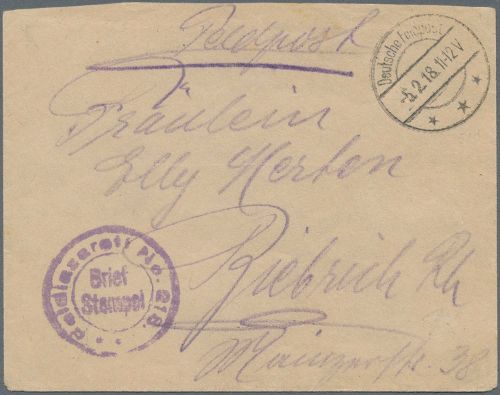 Feldpost
Deutsche Feldpost
-5.2.18.11-12V
* * *
Fräulein
Elly Merten
Biebrich Rh
Mainzerstr. 38
Feldlazarett No. 218.
Brief
Stempel